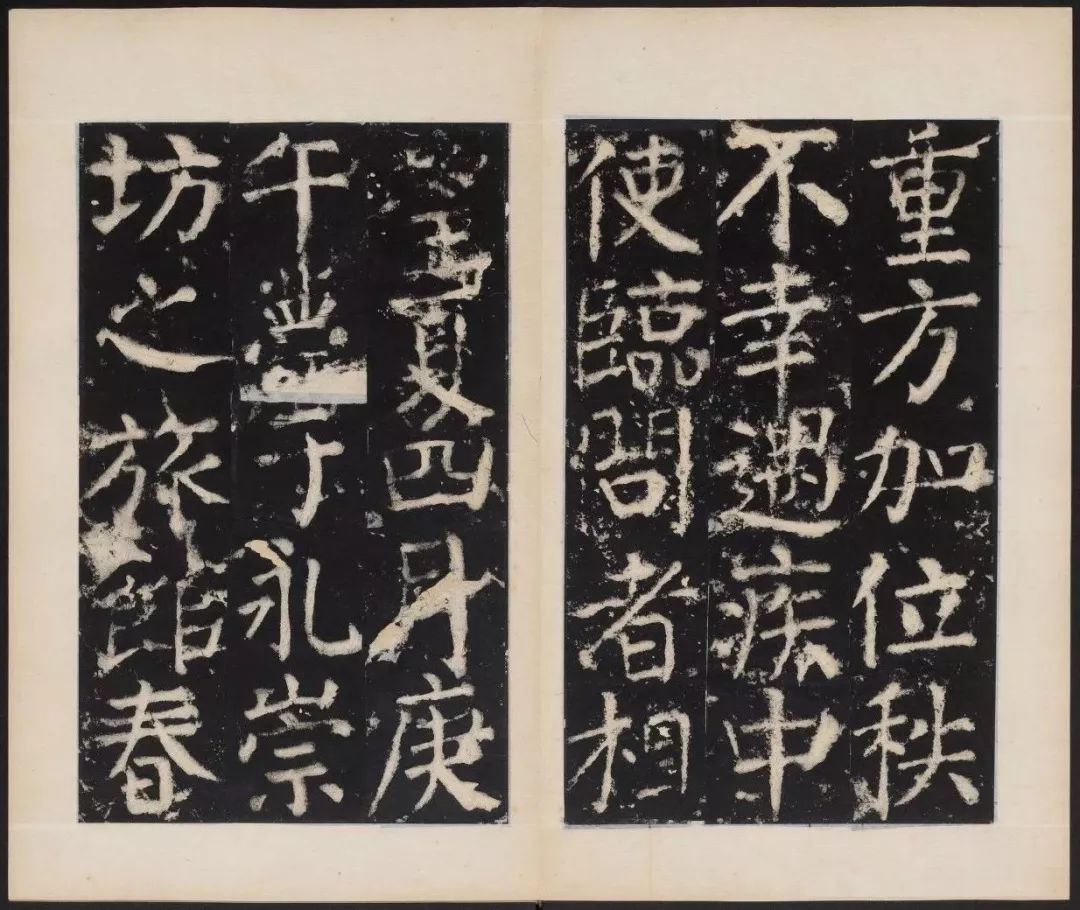 重方加位秩
不幸遇疾中
使臨問者相
望夏四月庚
午薨于永崇
坊之旅館春